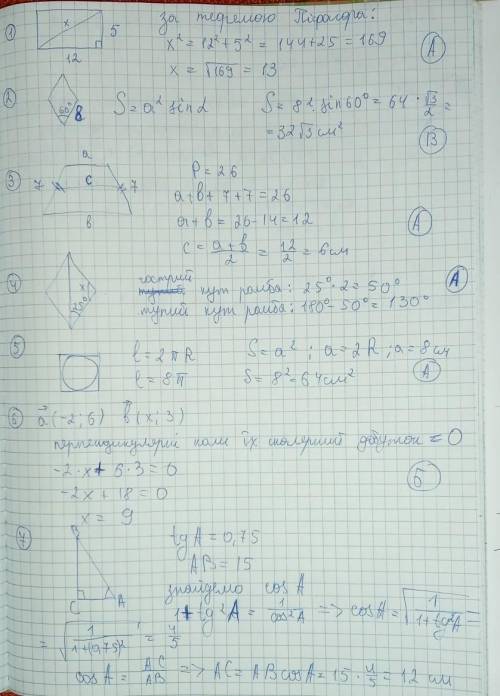 ① x 5 за теоремою Піфагора:
12 x² = 12² + 5² = 144 + 25 = 169
x = √169 = 13 Ⓐ
② 60° 8 S = a² sin α S = 8² · sin 60° = 64 · √3/2 =
= 32√3 см² Ⓑ
③ a P = 26
7 c 7 a + b + 7 + 7 = 26
b a + b = 26 - 14 = 12 Ⓐ
c = (a + b)/2 = 12/2 = 6 см
④ x 25° гострий кут ромба: 25° · 2 = 50° Ⓐ
тупий кут ромба: 180° - 50° = 130°
⑤ l = 2πR S = a² ; a = 2R ; a = 8 см
l = 8π S = 8² = 64 см² Ⓐ
⑥ a⃗ (-2; 6) b⃗ (x; 3)
перпендикулярні коли їх скалярний добуток = 0
-2 · x + 6 · 3 = 0 Ⓑ
-2x + 18 = 0
x = 9
⑦ B tg A = 0,75
AB = 15
C A знайдемо cos A
1 + tg² A = 1/cos² A => cos A = √(1/(1 + tg² A)) =
= √(1/(1 + (0,75)²)) = 4/5
cos A = AC/AB => AC = AB cos A = 15 · 4/5 = 12 см